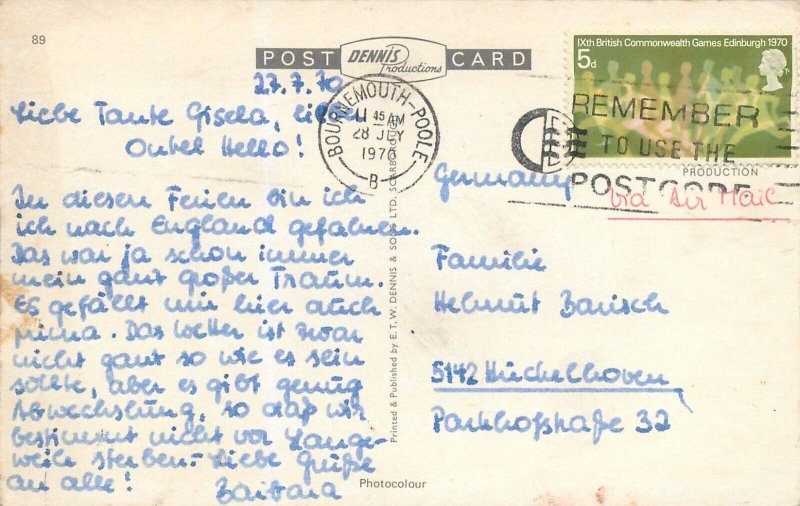 89
POST DENNIS Productions CARD
IXth British Commonwealth Games Edinburgh 1970
5d
27.7.70
BOURNEMOUTH-POOLE
11 45 AM
28 JLY
1970
B
REMEMBER
TO USE THE
POSTCODE
PRODUCTION
Via Air Mail
Liebe Tante Gisela, lieber
Onkel Hello!
In diesen Ferien bin ich
ich nach England gefahren.
Das war ja schon immer
mein ganz großer Traum.
Es gefällt mir hier auch
prima. Das Wetter ist zwar
nicht ganz so wie es sein
sollte, aber es gibt genug
Abwechslung, so daß wir
bestimmt nicht vor Lange-
weile sterben. Liebe Grüße
an alle!
Barbara
Printed & Published by E. T. W. DENNIS & SONS LTD. SCARBOROUGH
Germany
Familie
Helmut Barisch
5142 Hückelhoven
Parkhofstraße 32
Photocolour